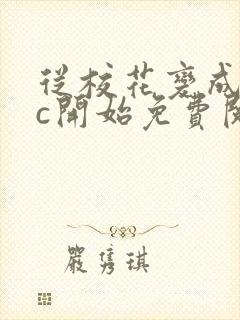 從校花變成
c開始免費閱
嚴雋琪